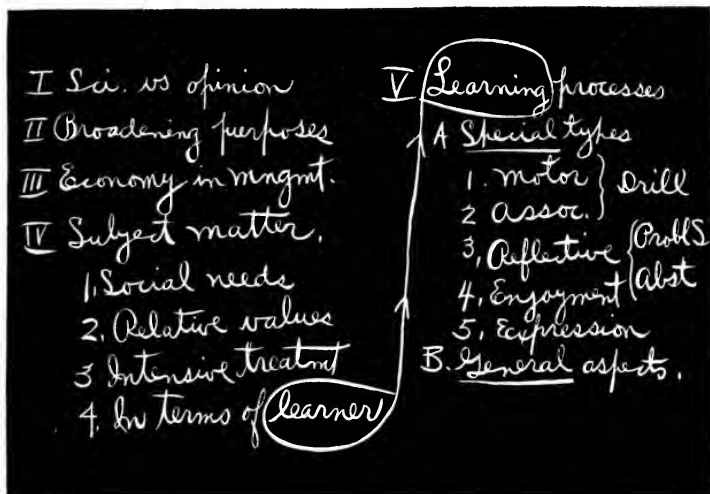 I Sci. vs opinion
II Broadening purposes
III Economy in mngmt.
IV Subject matter.
1. Social needs
2. Relative values
3 Intensive treatmt
4. In terms of learner
V Learning processes
A Special types
1. Motor } Drill
2 Assoc. }
3, Reflective { Probl S
4, Enjoyment { Abst
5, Expression
B. General aspects.